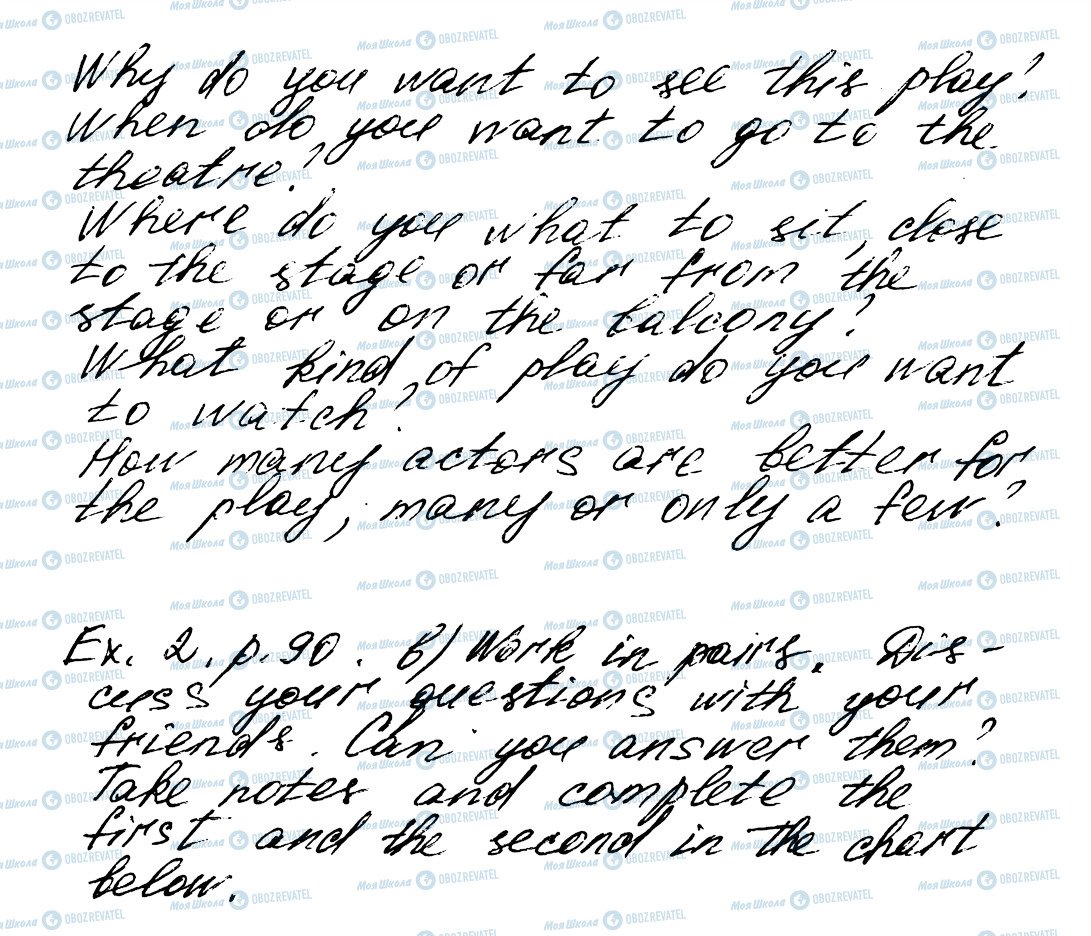 Why do you want to see this play?
When do you want to go to the
theatre?
Where do you what to sit, close
to the stage or far from the
stage or on the balcony?
What kind of play do you want
to watch?
How many actors are better for
the play, many or only a few?
Ex. 2, p. 90. b) Work in pairs. Dis-
cuss your questions with your
friends. Can you answer them?
Take notes and complete the
first and the second in the chart
below.